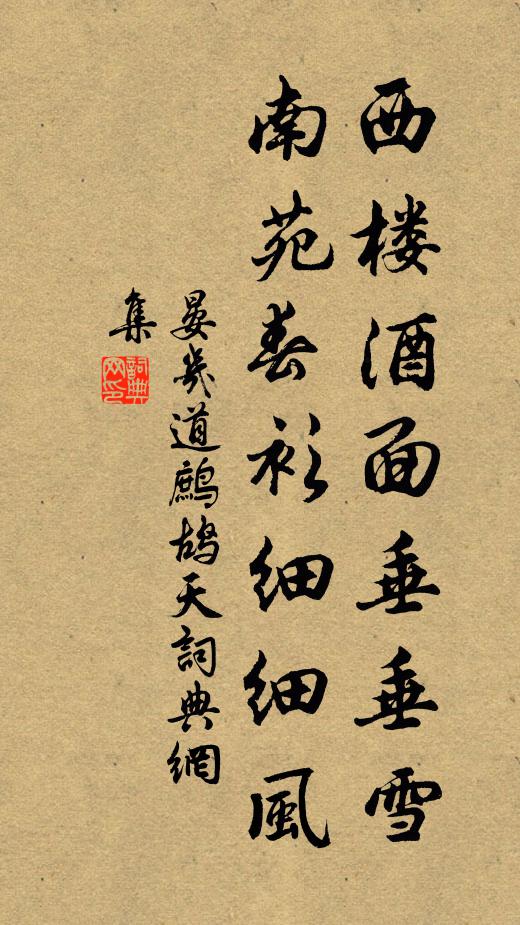 西楼酒面垂垂雪
南苑春衫细细風
晏幾道鷓鴣天詞典網
集
詞典网印